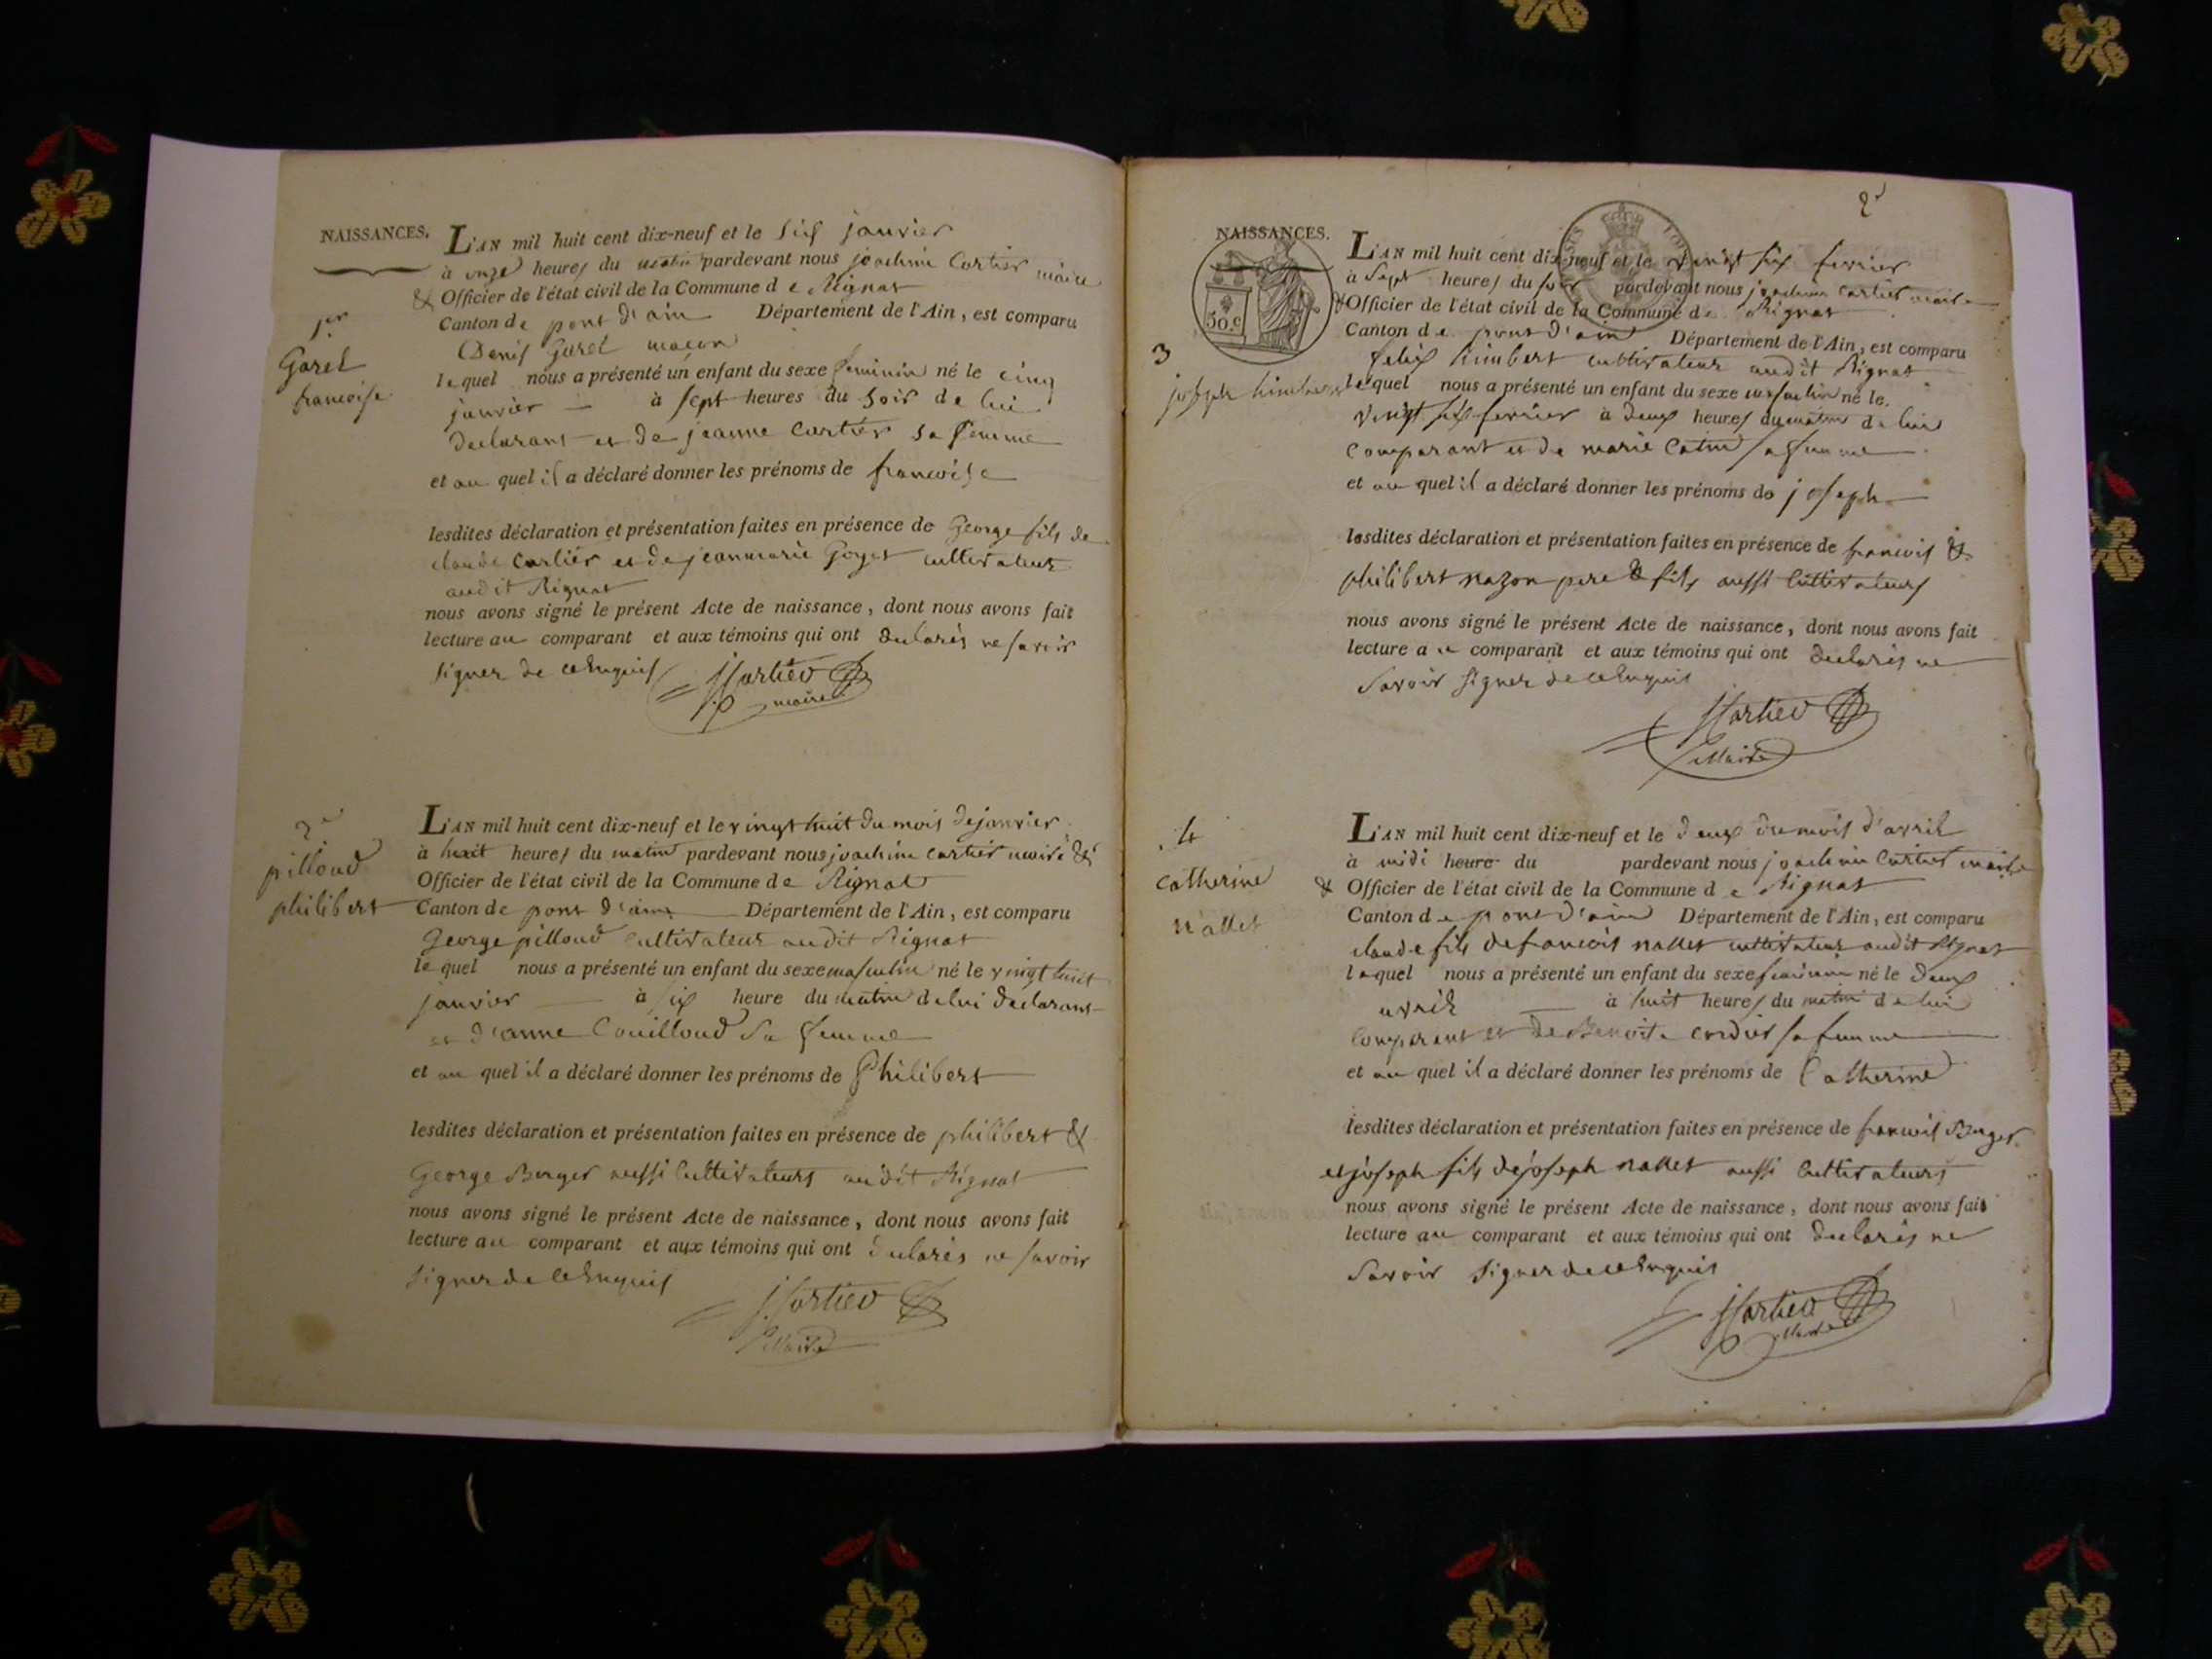 NAISSANCES.
L'AN mil huit cent dix-neuf et le six janvier
à onze heures du matin pardevant nous joachim Cartier maire
& Officier de l'état civil de la Commune de Rignat
Canton de pont d'ain Département de l'Ain, est comparu
1er
Garel
francoise
Denis Garel macon
lequel nous a présenté un enfant du sexe feminin né le cinq
janvier — à sept heures du soir de lui
declarant et de jeanne Cartier sa femme
et au quel il a déclaré donner les prénoms de francoise
lesdites déclaration et présentation faites en présence de George fils de
claude Cartier et de jeanmarie Goyet cultivateur
audit Rignat
nous avons signé le présent Acte de naissance, dont nous avons fait
lecture au comparant et aux témoins qui ont declarés ne savoir
signer de ce Enquis
JCartier
maire
2e
pilloud
philibert
L'AN mil huit cent dix-neuf et le vingt huit du mois de janvier
à huit heures du matin pardevant nous joachim cartier maire &
Officier de l'état civil de la Commune de Rignat
Canton de pont d'ain Département de l'Ain, est comparu
George pilloud cultivateur audit Rignat
lequel nous a présenté un enfant du sexe masculin né le vingt huit
janvier — à six heure du matin de lui declarant
et d'anne Couilloud sa femme
et au quel il a déclaré donner les prénoms de Philibert
lesdites déclaration et présentation faites en présence de philibert &
George Berger aussi Cultivateurs audit Rignat
nous avons signé le présent Acte de naissance, dont nous avons fait
lecture au comparant et aux témoins qui ont declarés ne savoir
signer de ce Enquis
JCartier
Maire
2e
NAISSANCES.
50.c
L'AN mil huit cent dix-neuf et le vingt six fevrier
à Sept heures du soir pardevant nous joachim cartier maire
& Officier de l'état civil de la Commune de Rignat
Canton de pont d'ain Département de l'Ain, est comparu
3
joseph himbert
felix himbert cultivateur audit Rignat
lequel nous a présenté un enfant du sexe masculin né le
vingt six fevrier à deux heures du matin de lui
comparant et de marie Catin sa femme
et au quel il a déclaré donner les prénoms de joseph
lesdites déclaration et présentation faites en présence de francois &
philibert nazon pere & fils aussi Cultivateurs
nous avons signé le présent Acte de naissance, dont nous avons fait
lecture au comparant et aux témoins qui ont declarés ne
savoir signer de ce Enquis
JCartier
Maire
4
Catherine
nallet
L'AN mil huit cent dix-neuf et le deux du mois d'avril
à midi heure du pardevant nous joachim Cartier maire
& Officier de l'état civil de la Commune de Rignat
Canton de pont d'ain Département de l'Ain, est comparu
claude fils de francois nallet cultivateur audit Rignat
lequel nous a présenté un enfant du sexe feminin né le deux
avril — à huit heures du matin de lui
Comparant et de Benoite cordier sa femme
et au quel il a déclaré donner les prénoms de Catherine
lesdites déclaration et présentation faites en présence de francois Berger
et joseph fils de joseph nallet aussi Cultivateurs
nous avons signé le présent Acte de naissance, dont nous avons fait
lecture au comparant et aux témoins qui ont declarés ne
Savoir signer de ce Enquis
JCartier
Maire